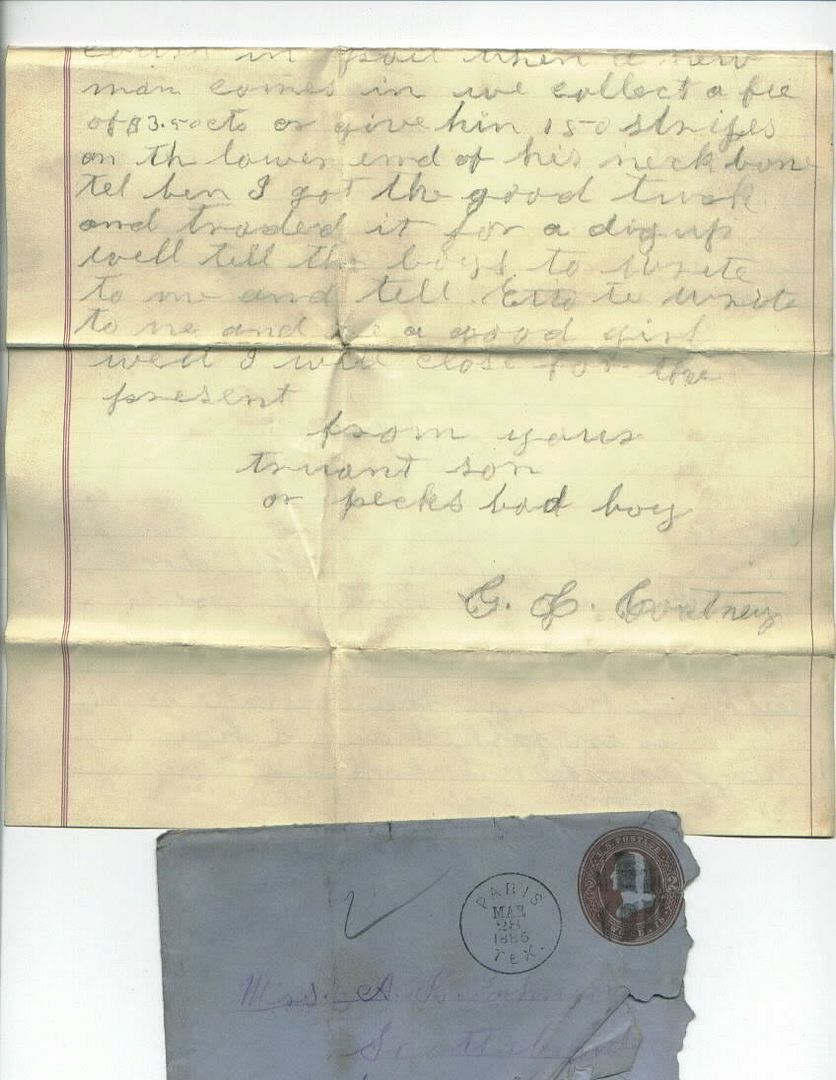 in when a new
man comes in we collect a fee
of $3.50cts or give hin 150 stripes
on th lower end of his neck bone
tel ben I got the good
and traded it for a dig up
well tell the boys to write
to me and tell Etta to write
to me and be a good girl
well I will close for the
present
from yours
truant son
or pecks bad boy
G. Courtney
U.S. POSTAGE
PARIS
MAR
28
1885
TEX.
Mrs. A.